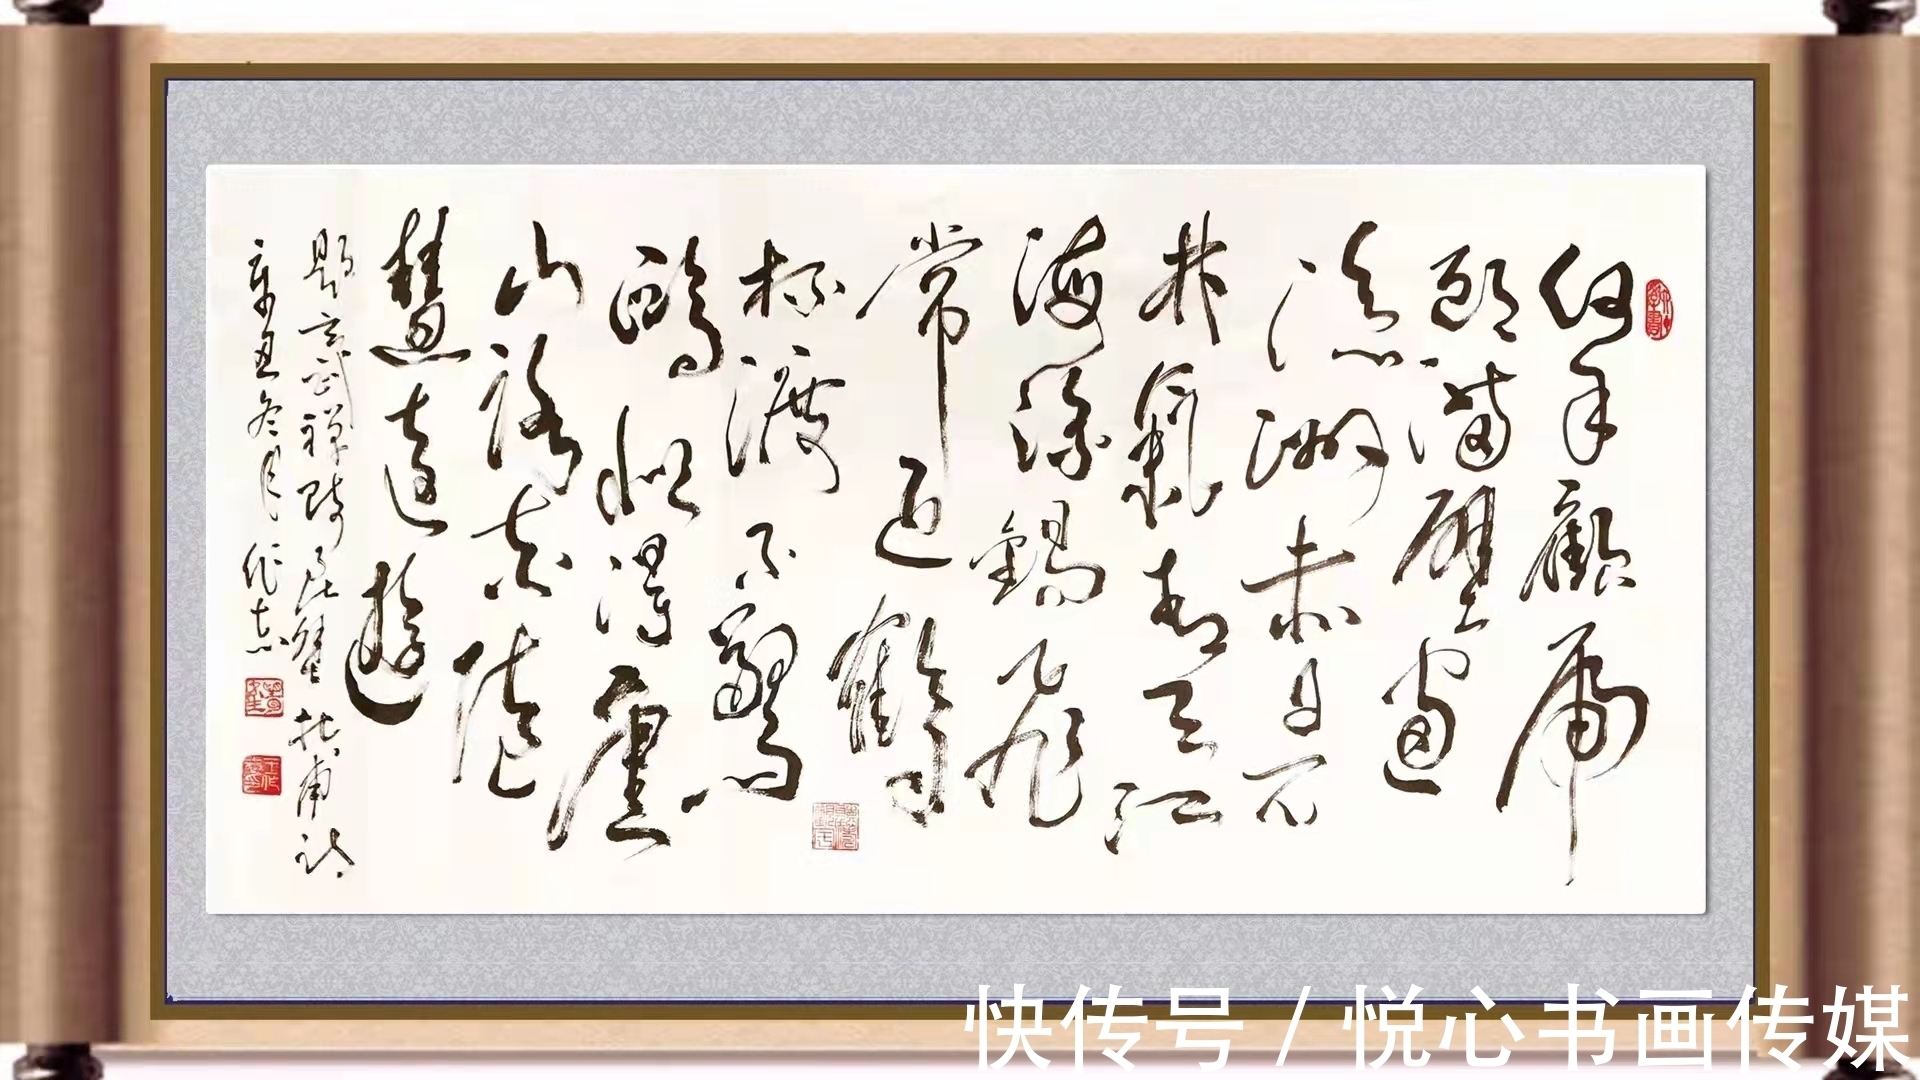 何年顾虎
头满壁画
瀛洲赤日石
林气青天江
海流锡飞
常近鹤
杯渡不惊
鸥似得庐
山路真随
慧远游
题玄武禅师屋壁 杜甫诗
辛丑冬月作志
快传号 / 悦心书画传媒